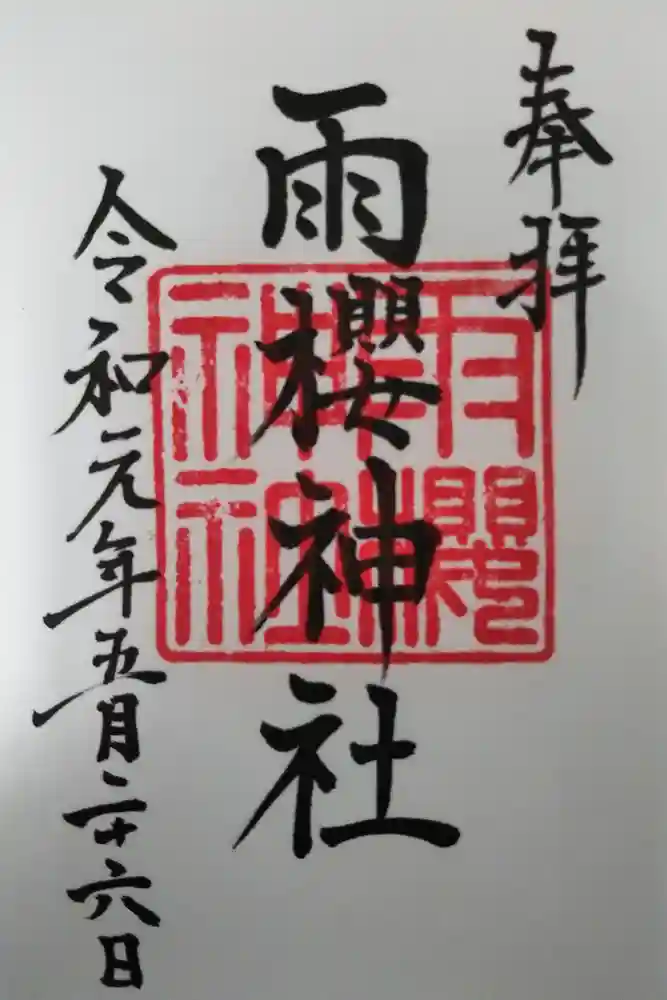 奉拝
雨櫻神社
雨櫻神社
令和元年五月二十六日